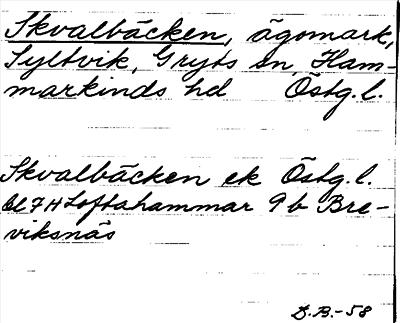 Skvalbäcken, ägomark,
Syltvik, Gryts sn, Ham-
markinds hd Östg. l.
Skvalbäcken ek Östg. l.
bl 7H Loftahammar 9 b Bre-
viksnäs
D. B. -58